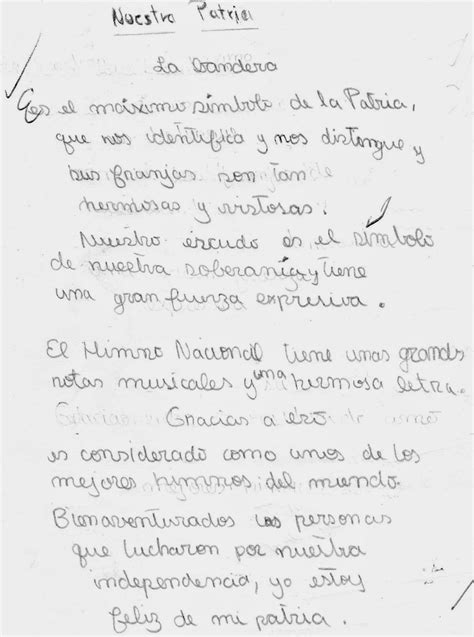 Nuestra Patria
La bandera
es el máximo símbolo de la Patria,
que nos identifica y nos distingue y
sus franjas son tan
hermosas y vistosas.
Nuestro escudo es el símbolo
de nuestra soberanía y tiene
una gran fuerza expresiva.
El Himno Nacional tiene unas grandes
notas musicales y una hermosa letra.
Gracias a eso
es considerado como unos de los
mejores hymnos del mundo.
Bienaventurados las personas
que lucharon por nuestra
independencia, yo estoy
feliz de mi patria.